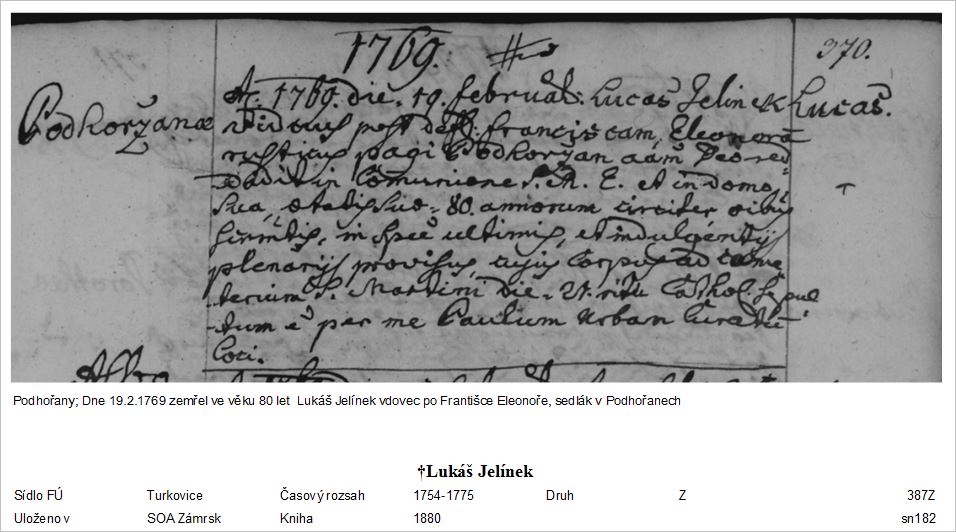 1769.
370.
Podkoržanæ
A. 1769. die. 19. februar: Lucas Jelinek
Lucas.
viduus post def: franciscam, Eleonorā
rusticus pagi Podkoržan aām Deo red
didit in Comunione S. M. E. et in domo
sua, ætatis suæ 80. annorum circiter oibus
firmitis, in spec ultimis, et indulgentijs
plenarijs provisus, cujus Corpus ad Cæme
terium S. Martini die. 21. ritu Cathol. sepul
tum ē per me Paulum Urban Curatū
Loci.
Podhořany; Dne 19.2.1769 zemřel ve věku 80 let Lukáš Jelínek vdovec po Františce Eleonoře, sedlák v Podhořanech
†Lukáš Jelínek
Sídlo FÚ Turkovice Časový rozsah 1754-1775 Druh Z 387Z
Uloženo v SOA Zámrsk Kniha 1880 sn182